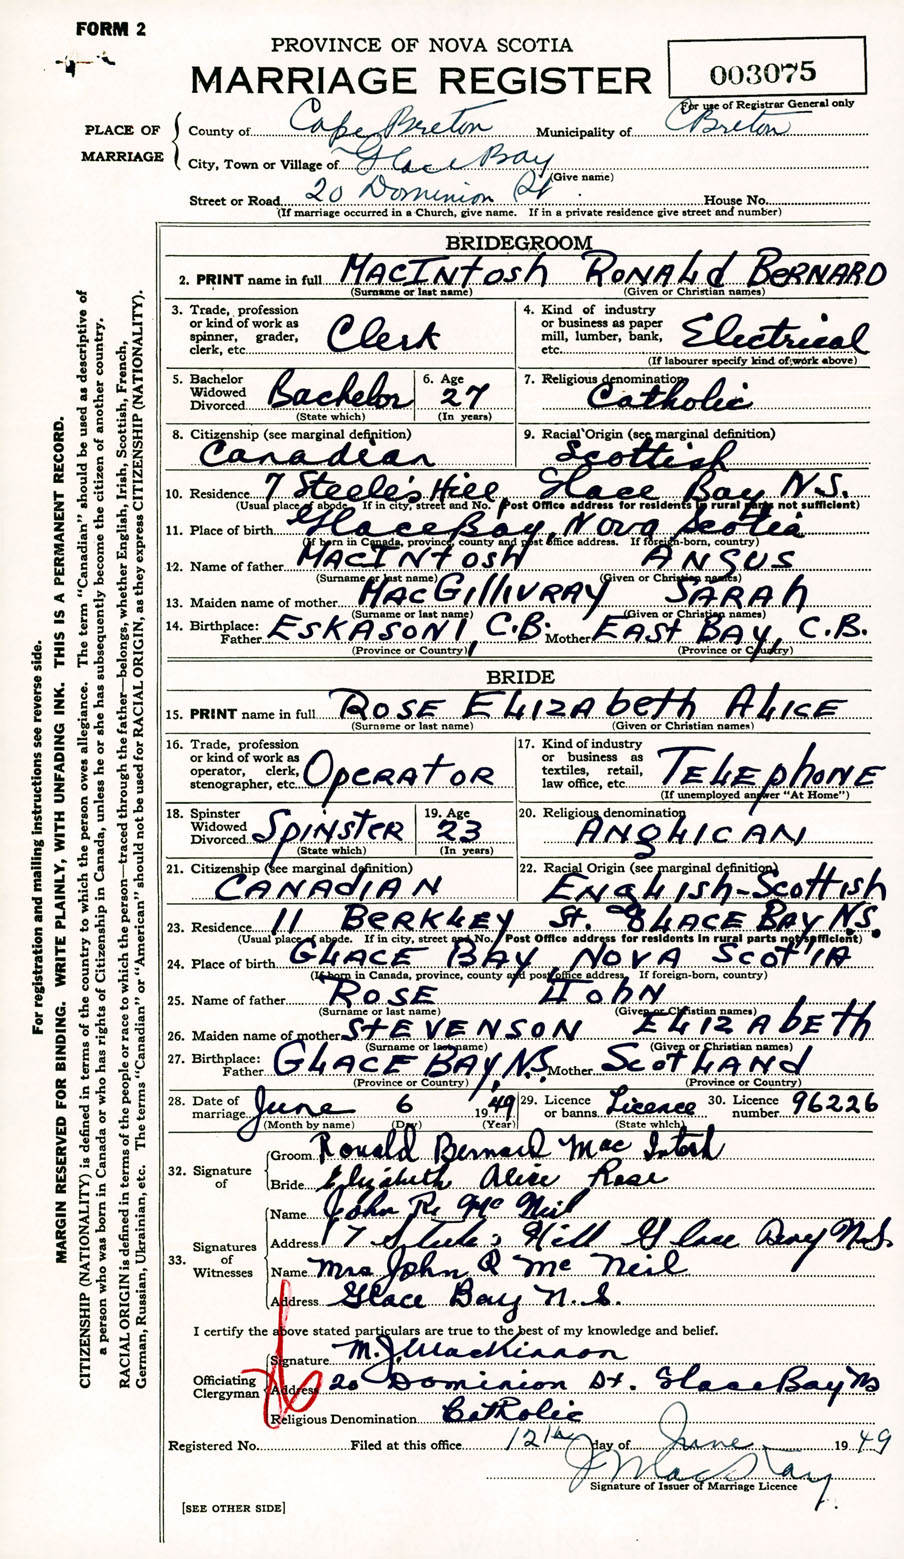 FORM 2
PROVINCE OF NOVA SCOTIA
MARRIAGE REGISTER
003075
For use of Registrar General only
PLACE OF MARRIAGE
County of Cape Breton Municipality of C Breton
City, Town or Village of Glace Bay
(Give name)
Street or Road 20 Dominion St. House No.
(If marriage occurred in a Church, give name. If in a private residence give street and number)
BRIDEGROOM
2. PRINT name in full MacINTosh RONALd BERNARD
(Surname or last name) (Given or Christian names)
3. Trade, profession or kind of work as spinner, grader, clerk, etc. Clerk
4. Kind of industry or business as paper mill, lumber, bank, etc. Electrical
(If labourer specify kind of work above)
5. Bachelor Widowed Divorced Bachelor
(State which)
6. Age 27
(In years)
7. Religious denomination Catholic
8. Citizenship (see marginal definition) Canadian
9. Racial Origin (see marginal definition) Scottish
10. Residence 7 Steele's Hill, Glace Bay N.S.
(Usual place of abode. If in city, street and No. Post Office address for residents in rural parts not sufficient)
11. Place of birth Glace Bay, Nova Scotia
(If born in Canada, province, county and post office address. If foreign-born, country)
12. Name of father MacINTosh ANGUS
(Surname or last name) (Given or Christian names)
13. Maiden name of mother MacGILLIVRAY SARAh
(Surname or last name) (Given or Christian names)
14. Birthplace: Father ESKASONI, C.B. Mother EAST BAY, C.B.
(Province or Country) (Province or Country)
BRIDE
15. PRINT name in full ROSE ELIZAbeth ALICE
(Surname or last name) (Given or Christian names)
16. Trade, profession or kind of work as operator, clerk, stenographer, etc. OPERATOR
17. Kind of industry or business as textiles, retail, law office, etc. TELEphONE
(If unemployed answer "At Home")
18. Spinster Widowed Divorced SPINSTER
(State which)
19. Age 23
(In years)
20. Religious denomination ANGLICAN
21. Citizenship (see marginal definition) CANAdIAN
22. Racial Origin (see marginal definition) ENGLISh-Scottish
23. Residence 11 BERKLEY St. GLACE BAY N.S.
(Usual place of abode. If in city, street and No. Post Office address for residents in rural parts not sufficient)
24. Place of birth GLACE BAY, NOVA SCOTIA
(If born in Canada, province, county and post office address. If foreign-born, country)
25. Name of father ROSE JOhN
(Surname or last name) (Given or Christian names)
26. Maiden name of mother STEVENSON ELIZAbETh
(Surname or last name) (Given or Christian names)
27. Birthplace: Father GLACE BAY, N.S. Mother SCOTLANd
(Province or Country) (Province or Country)
28. Date of marriage June 6 1949
(Month by name) (Day) (Year)
29. Licence or banns Licence
(State which)
30. Licence number 96226
32. Signature of
Groom Ronald Bernard Mac Intosh
Bride Elizabeth Alice Rose
33. Signatures of Witnesses
Name John R. Mc Neil
Address 17 Steele's Hill Glace Bay N.S.
Name Mrs John R Mc Neil
Address Glace Bay N.S.
I certify the above stated particulars are true to the best of my knowledge and belief.
Officiating Clergyman
Signature M. J. MacKinnon
Address 20 Dominion St. Glace Bay NS
Religious Denomination Catholic
Registered No. Filed at this office 12th day of June 1949
J MacKay
Signature of Issuer of Marriage Licence
[SEE OTHER SIDE]
For registration and mailing instructions see reverse side.
MARGIN RESERVED FOR BINDING. WRITE PLAINLY, WITH UNFADING INK. THIS IS A PERMANENT RECORD.
CITIZENSHIP (NATIONALITY) is defined in terms of the country to which the person owes allegiance. The term "Canadian" should be used as descriptive of
a person who was born in Canada or who has rights of Citizenship in Canada, unless he or she has subsequently become the citizen of another country.
RACIAL ORIGIN is defined in terms of the people or race to which the person—traced through the father—belongs, whether English, Irish, Scottish, French,
German, Russian, Ukrainian, etc. The terms "Canadian" or "American" should not be used for RACIAL ORIGIN, as they express CITIZENSHIP (NATIONALITY).